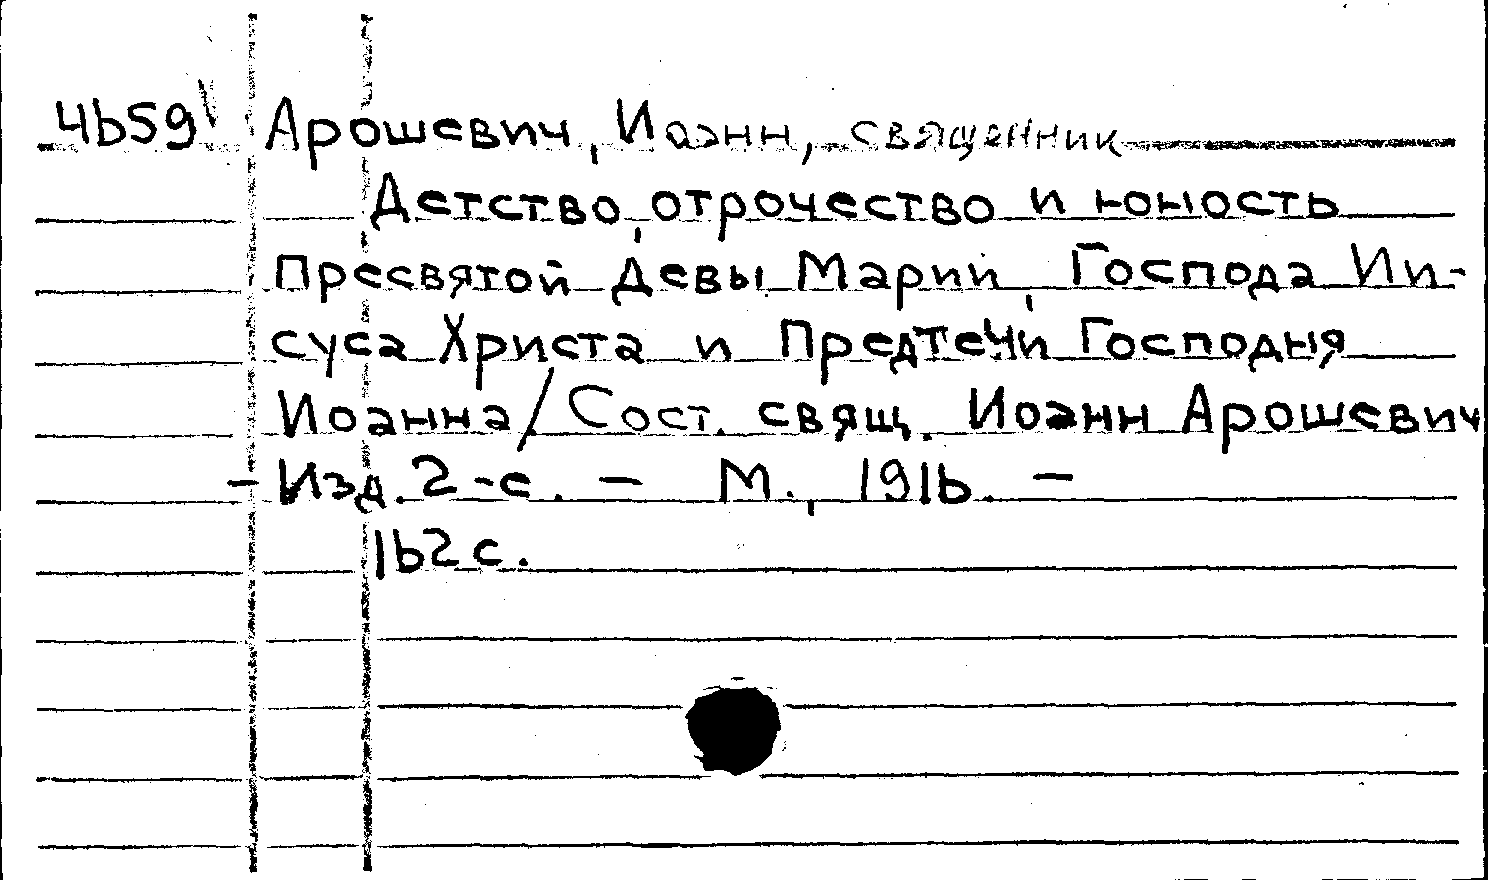 4659 Арошевич, Иоанн, священник
Детство, отрочество и юность
Пресвятой Девы Марии, Господа Ии-
суса Христа и Предтечи Господня
Иоанна/Сост. свящ. Иоанн Арошевич
- Изд. 2-е. - М., 1916. -
162 с.